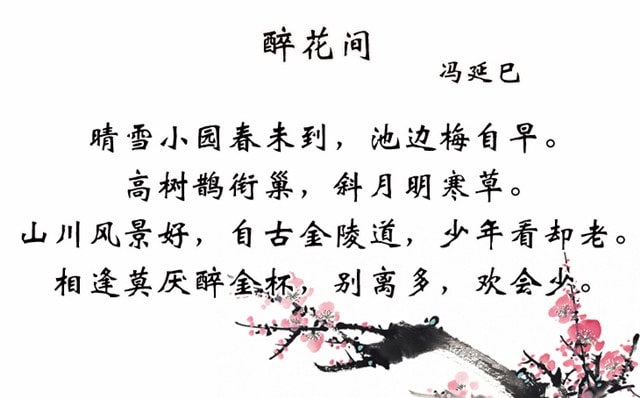 醉花间
冯延巳
晴雪小园春未到，池边梅自早。
高树鹊衔巢，斜月明寒草。
山川风景好，自古金陵道，少年看却老。
相逢莫厌醉金杯，别离多，欢会少。